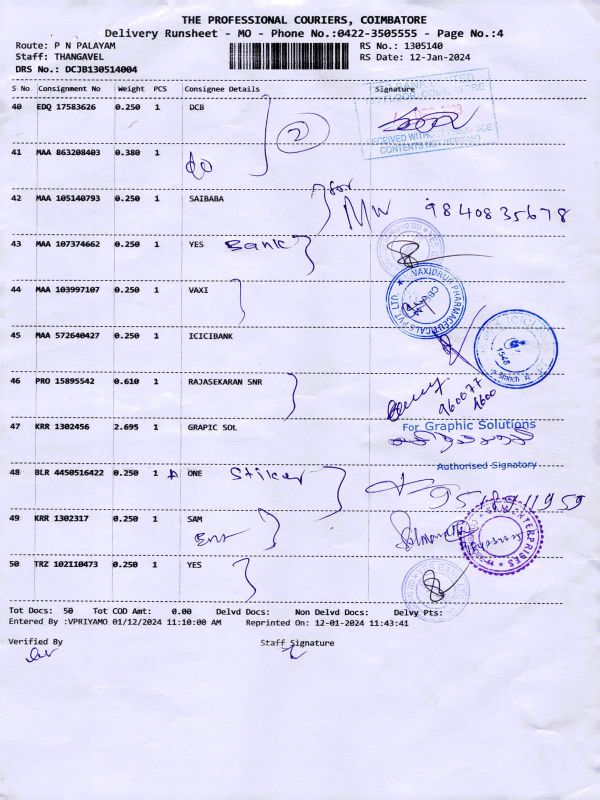 THE PROFESSIONAL COURIERS, COIMBATORE
Delivery Runsheet - MO - Phone No.:0422-3505555 - Page No.:4
Route: P N PALAYAM RS No.: 1305140
Staff: THANGAVEL RS Date: 12-Jan-2024
DRS No.: DCJB130514004
S No Consignment No Weight PCS Consignee Details Signature
40 EDQ 17583626 0.250 1 DCB
2
RECEIVED WITHOUT
CONTENTS NOT VERIFIED
41 MAA 863208403 0.380 1
do
42 MAA 105140793 0.250 1 SAIBABA
for
9840835678
43 MAA 107374662 0.250 1 YES Bank
44 MAA 103997107 0.250 1 VAXI
VAXIDRUP PHARMACEUTICALS PVT LTD.
45 MAA 572640427 0.250 1 ICICIBANK
ICICI
1548
Branch
46 PRO 15895542 0.610 1 RAJASEKARAN SNR
960077
1600
47 KRR 1302456 2.695 1 GRAPIC SOL
For Graphic Solutions
Authorised Signatory
48 BLR 4450516422 0.250 1 ONE Stiker
49 KRR 1302317 0.250 1 SAM
ENTERPRISES
50 TRZ 102110473 0.250 1 YES
Tot Docs: 50 Tot COD Amt: 0.00 Delvd Docs: Non Delvd Docs: Delvy Pts:
Entered By :VPRIYAMO 01/12/2024 11:10:00 AM Reprinted On: 12-01-2024 11:43:41
Verified By Staff Signature